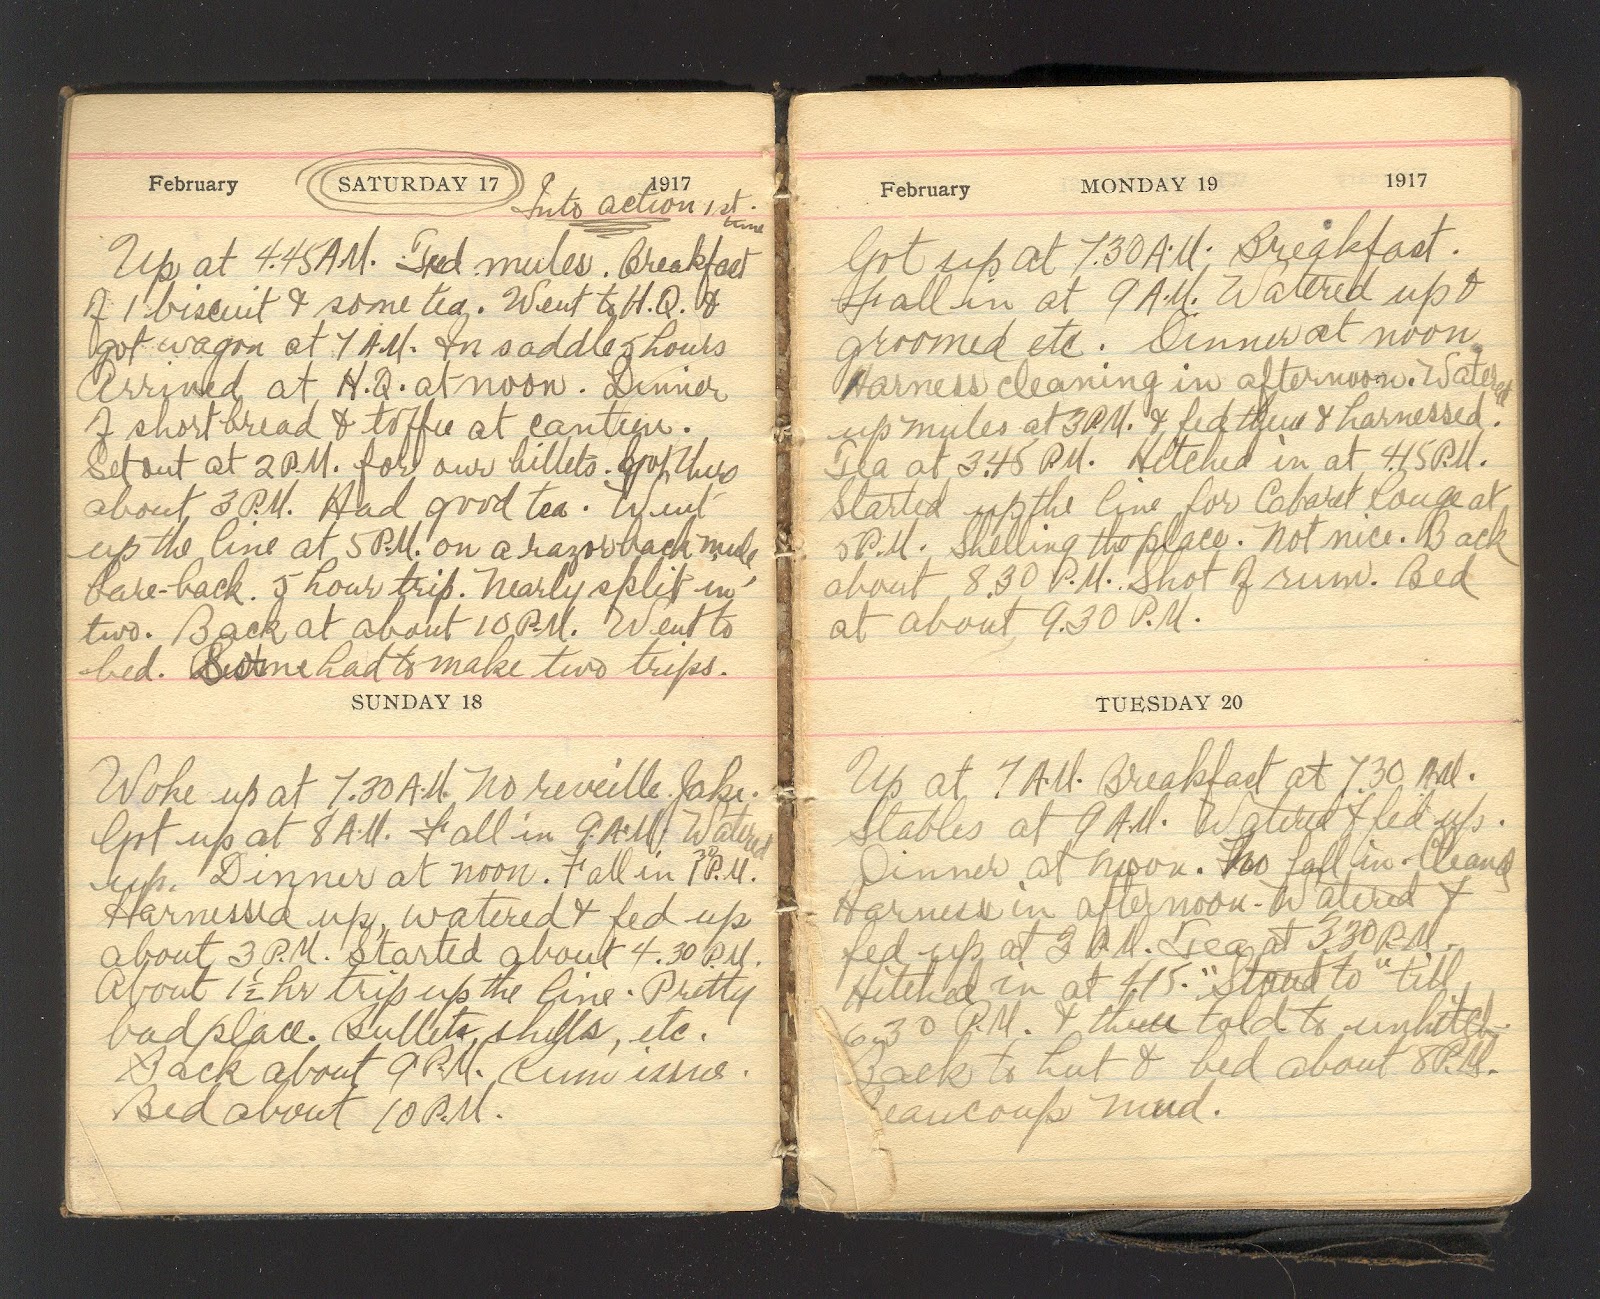 February SATURDAY 17 1917
Into action 1st time
Up at 4.45 A.M. Fed mules. Breakfast
of 1 biscuit & some tea. Went to H.Q. &
got wagon at 7 A.M. In saddle 5 hours
Arrived at H.Q. at noon. Dinner
of shortbread & toffee at canteen.
Set out at 2 P.M. for our billets. Got
about 3 P.M. Had good tea. Went
up the line at 5 P.M. on a razorback mule
bare-back. 5 hour trip. Nearly split in
two. Back at about 10 P.M. Went to
bed. Some had to make two trips.
SUNDAY 18
Woke up at 7.30 A.M. No reveille. Jake.
Got up at 8 A.M. Fall in 9 A.M. Watered
up. Dinner at noon. Fall in 1 30 P.M.
Harnessed up, watered & fed up
about 3 P.M. Started about 4.30 P.M.
About 1½ hr trip up the line. Pretty
bad place. Bullets, shells, etc.
Back about 9 P.M. Rum issue.
Bed about 10 P.M.
February MONDAY 19 1917
Got up at 7.30 A.M. Breakfast.
Fall in at 9 A.M. Watered up &
groomed etc. Dinner at noon.
Harness cleaning in afternoon. Watered
up mules at 3 P.M. & fed them & harnessed.
Tea at 3.45 P.M. Hitched in at 4.15 P.M.
Started up the line for Cabaret Rouge at
5 P.M. Shelling the place. Not nice. Back
about 8.30 P.M. Shot of rum. Bed
at about 9.30 P.M.
TUESDAY 20
Up at 7 A.M. Breakfast at 7.30 A.M.
Stables at 9 A.M. Watered & fed up.
Dinner at noon. No fall in. Cleaned
Harness in afternoon. Watered &
fed up at 3 P.M. Tea at 3.30 P.M.
Hitched in at 4.15. "Stand to" till
6.30 P.M. & then told to unhitch.
Back to hut & bed about 8 P.M.
Beaucoup mud.